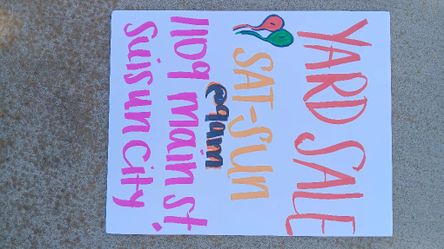 YARD SALE
SAT-SUN
@9am
1109 Main St.
Suisun City